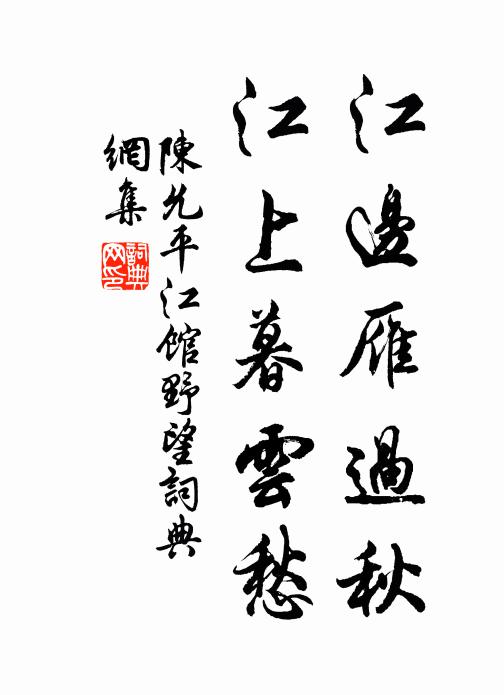 江邊雁過秋
江上暮雲愁
陳允平江館野望詞典
網集
詞典网印